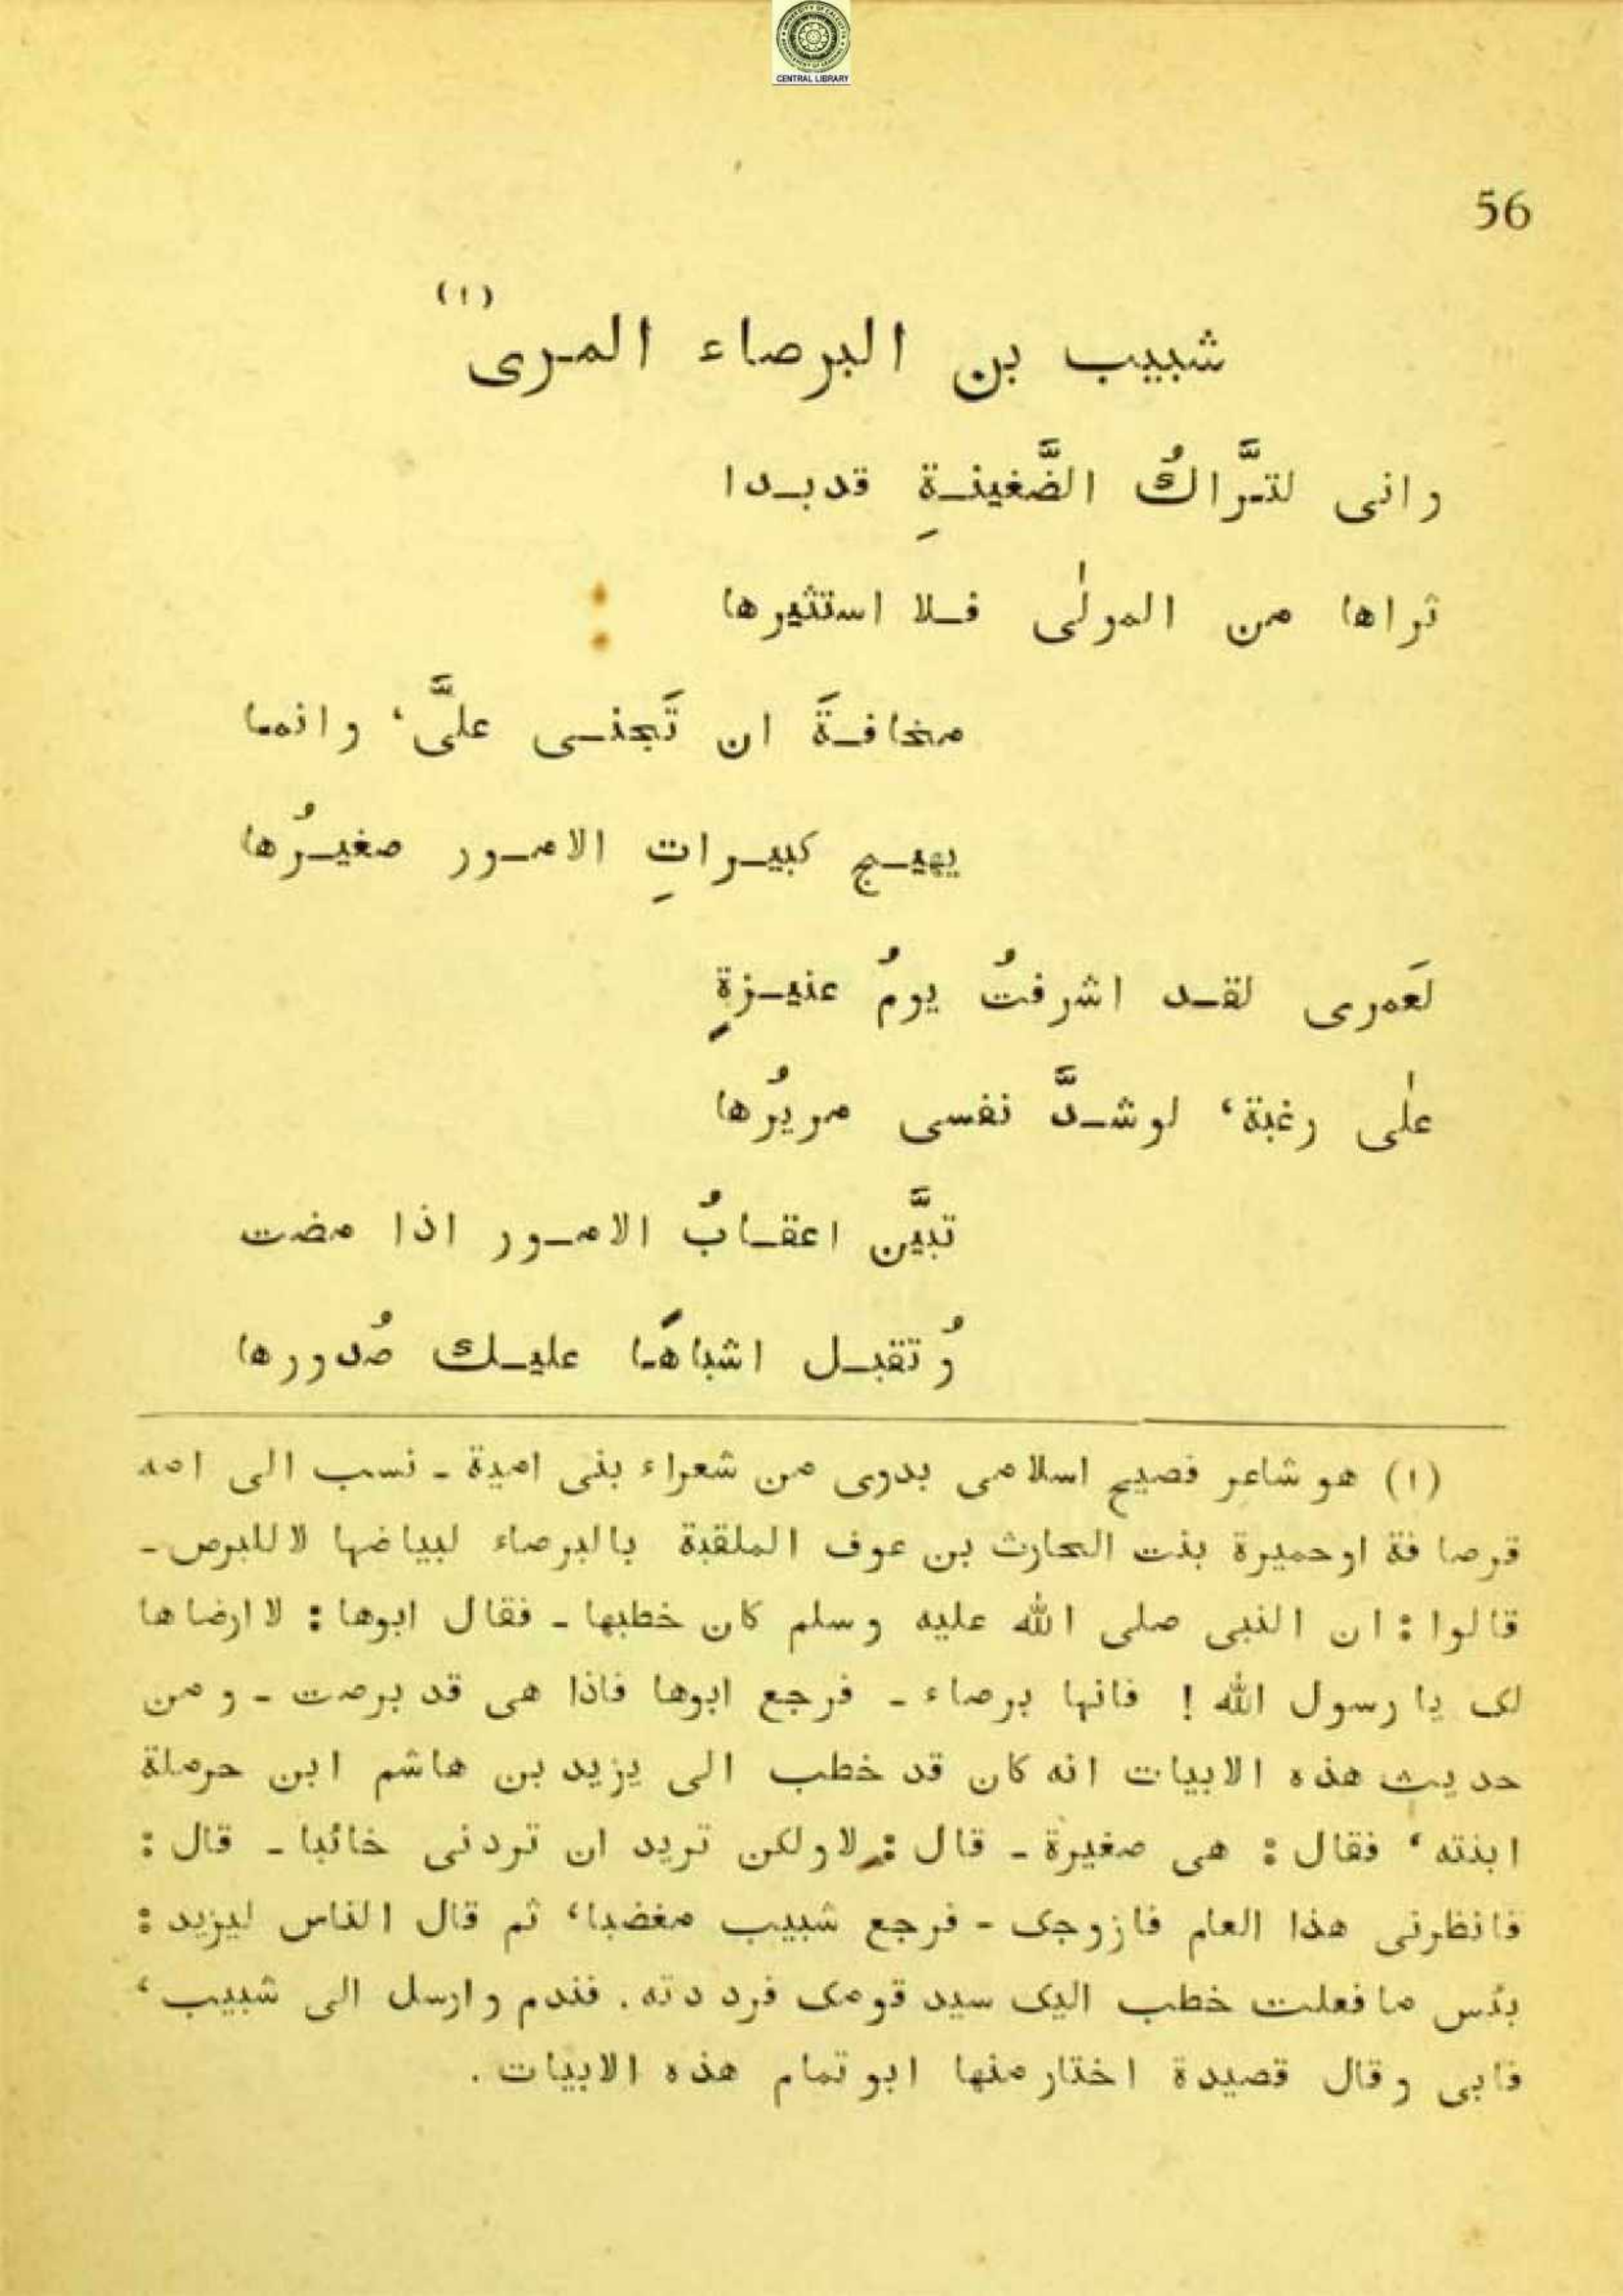 CENTRAL LIBRARY
56
شبيب بن البرصاء المرى (١)
وانى لترَّاكُ الضَّغينةِ قد بدا
تراها من المولٰى فلا استثيرها
مخافةَ ان تَجنى علىَّ، وانما
يهيج كبيراتِ الامور صغيرُها
لعَمرى لقد اشرفتُ يومُ عنيزةٍ
علٰى رغبة، لوشدَّ نفسى مريرُها
تبيَّن اعقابُ الامور اذا مضت
وُتقبل اشباهًا عليك صُدورها
(١) هو شاعر فصيح اسلامى بدوى من شعراء بنى امية ـ نسب الى امه
قرصافة اوحميرة بنت الحارث بن عوف الملقبة بالبرصاء لبياضها لاللبرص ـ
قالوا : ان النبى صلى الله عليه وسلم كان خطبها ـ فقال ابوها : لا ارضاها
لک يا رسول الله ! فانها برصاء ـ فرجع ابوها فاذا هى قد برصت ـ ومن
حديث هذه الابيات انه كان قد خطب الى يزيد بن هاشم ابن حرملة
ابنته، فقال : هى صغيرة ـ قال : لاولكن تريد ان تردنى خائبا ـ قال :
فانظرنى هذا العام فازوجک ـ فرجع شبيب مغضبا، ثم قال الناس ليزيد :
بئس مافعلت خطب اليک سيد قومک فرددته . فندم وارسل الى شبيب،
فابى وقال قصيدة اختار منها ابو تمام هذه الابيات .